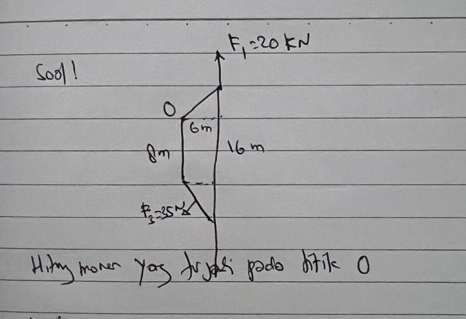 F₁=20 KN
Soal!
O
6m
8m
16 m
Hitung momen yang terjadi pada titik O